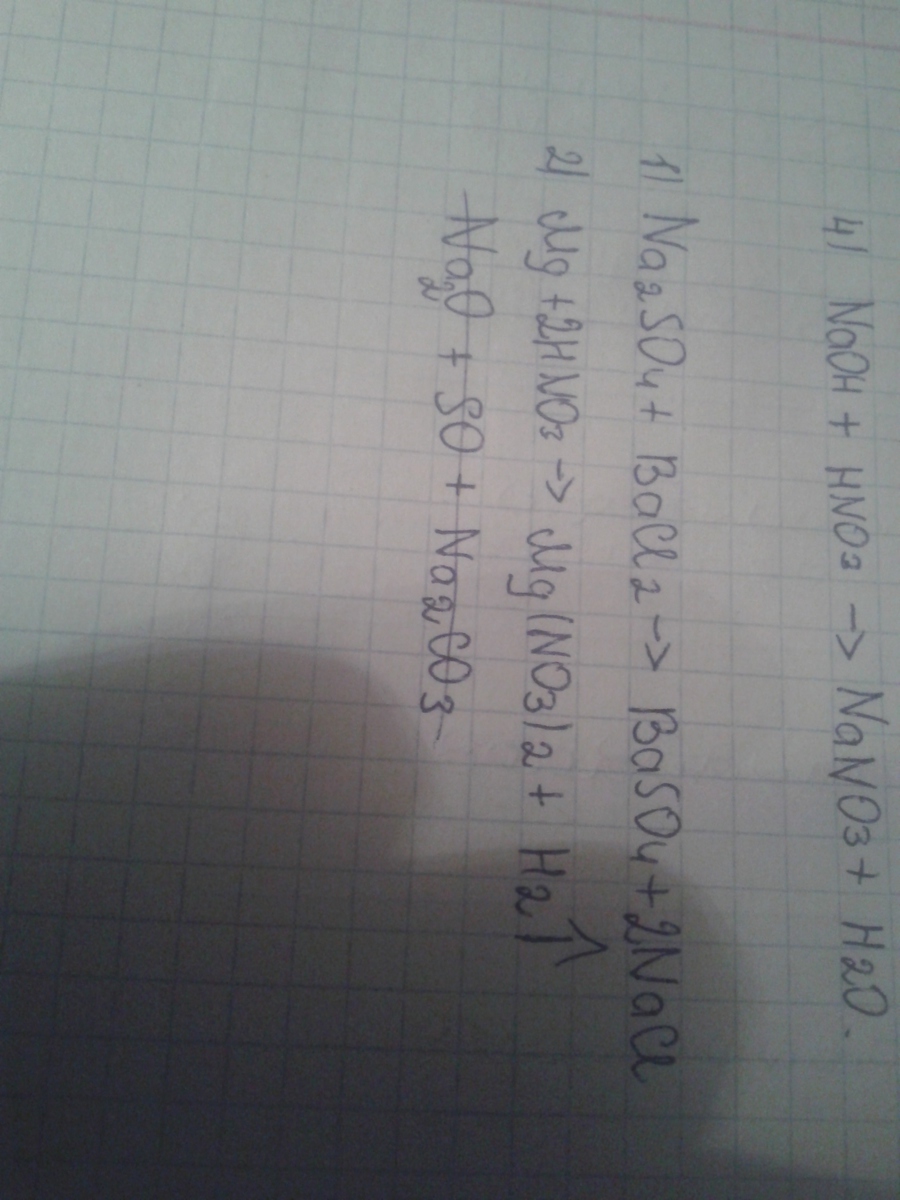 4) NaOH + HNO3 -> NaNO3 + H2O.
1) Na2SO4 + BaCl2 -> BaSO4 + 2NaCl
2) Mg + 2HNO3 -> Mg(NO3)2 + H2↑
Na2O + SO + Na2CO3